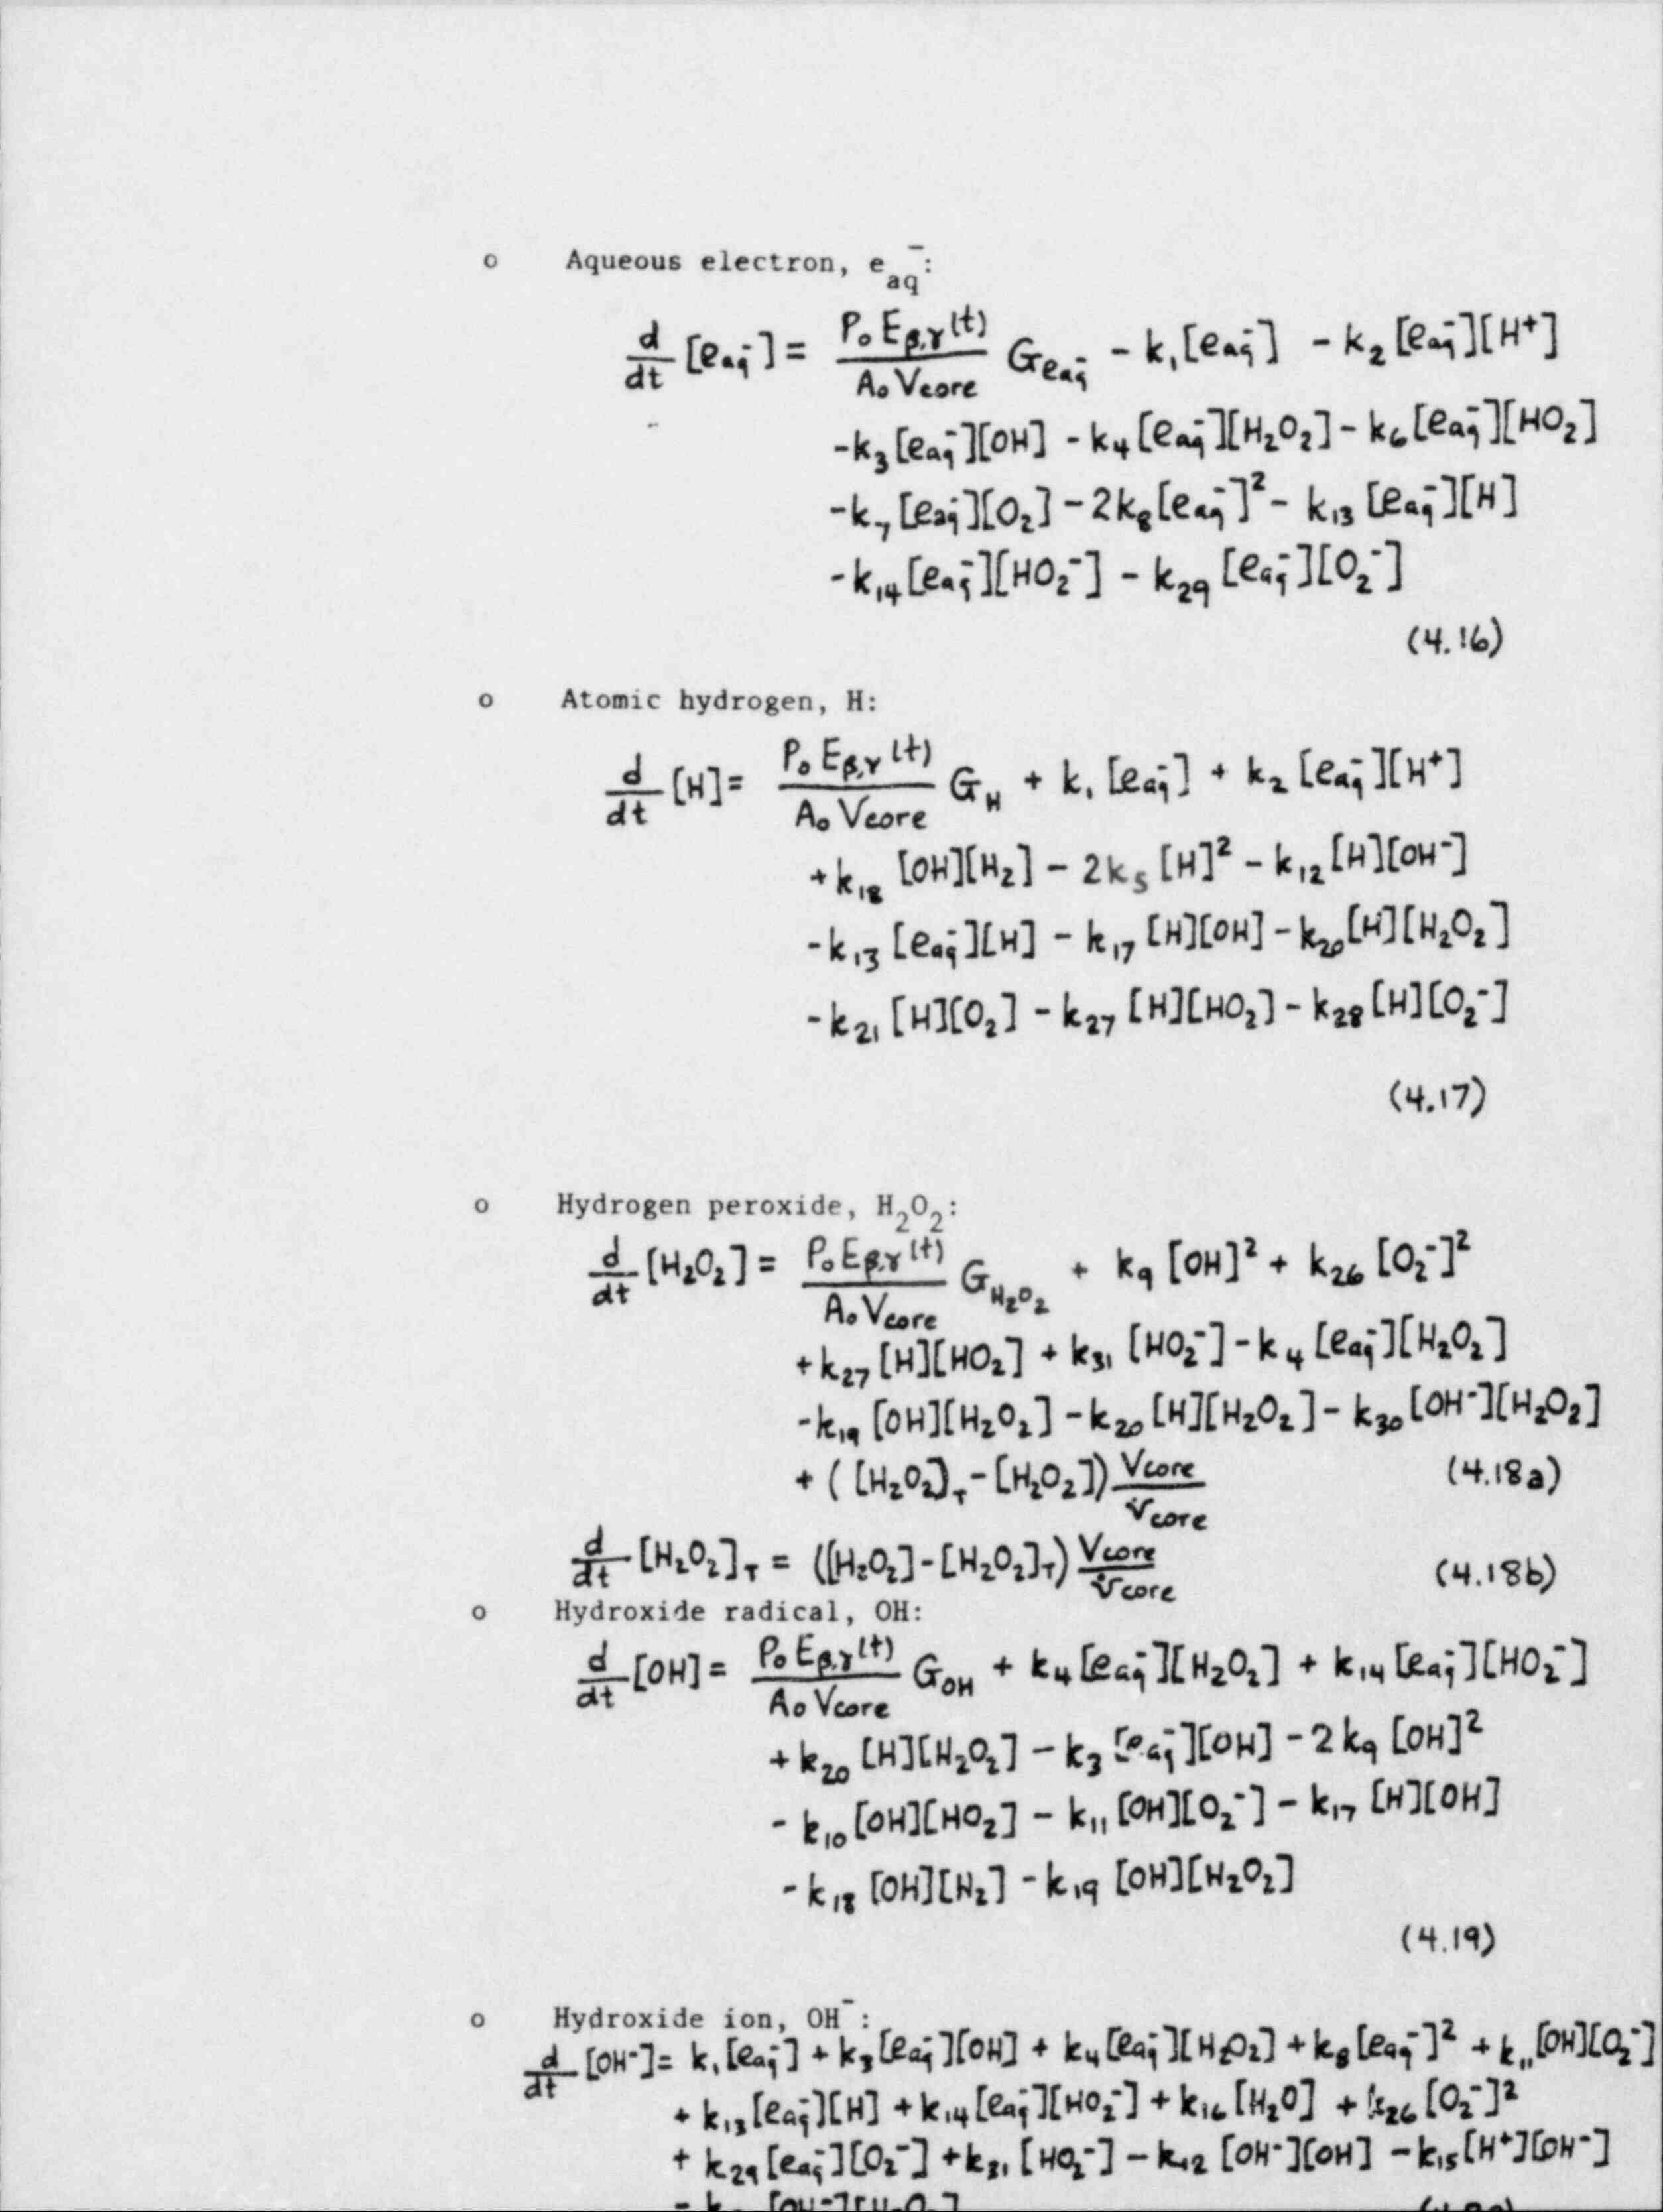 o Aqueous electron, e⁻aq:
d/dt [e⁻aq] = P₀Eβ,γ(t)/A₀Vcore Ge⁻aq - k₁[e⁻aq] - k₂[e⁻aq][H⁺]
-k₃[e⁻aq][OH] - k₄[e⁻aq][H₂O₂] - k₆[e⁻aq][HO₂]
-k₇[e⁻aq][O₂] - 2k₈[e⁻aq]² - k₁₃[e⁻aq][H]
-k₁₄[e⁻aq][HO₂⁻] - k₂₉[e⁻aq][O₂⁻]
(4.16)
o Atomic hydrogen, H:
d/dt [H] = P₀Eβ,γ(t)/A₀Vcore GH + k₁[e⁻aq] + k₂[e⁻aq][H⁺]
+k₁₈[OH][H₂] - 2k₅[H]² - k₁₂[H][OH⁻]
-k₁₃[e⁻aq][H] - k₁₇[H][OH] - k₂₀[H][H₂O₂]
-k₂₁[H][O₂] - k₂₇[H][HO₂] - k₂₈[H][O₂⁻]
(4.17)
o Hydrogen peroxide, H₂O₂:
d/dt [H₂O₂] = P₀Eβ,γ(t)/A₀Vcore GH₂O₂ + k₉[OH]² + k₂₆[O₂⁻]²
+k₂₇[H][HO₂] + k₃₁[HO₂⁻] - k₄[e⁻aq][H₂O₂]
-k₁₉[OH][H₂O₂] - k₂₀[H][H₂O₂] - k₃₀[OH⁻][H₂O₂]
+ ([H₂O₂]T - [H₂O₂]) Vcore/v̇core (4.18a)
d/dt [H₂O₂]T = ([H₂O₂] - [H₂O₂]T) Vcore/v̇core (4.18b)
o Hydroxide radical, OH:
d/dt [OH] = P₀Eβ,γ(t)/A₀Vcore GOH + k₄[e⁻aq][H₂O₂] + k₁₄[e⁻aq][HO₂⁻]
+k₂₀[H][H₂O₂] - k₃[e⁻aq][OH] - 2k₉[OH]²
- k₁₀[OH][HO₂] - k₁₁[OH][O₂⁻] - k₁₇[H][OH]
-k₁₈[OH][H₂] - k₁₉[OH][H₂O₂]
(4.19)
o Hydroxide ion, OH⁻:
d/dt [OH⁻] = k₁[e⁻aq] + k₃[e⁻aq][OH] + k₄[e⁻aq][H₂O₂] + k₈[e⁻aq]² + k₁₁[OH][O₂⁻]
+ k₁₃[e⁻aq][H] + k₁₄[e⁻aq][HO₂⁻] + k₁₆[H₂O] + k₂₆[O₂⁻]²
+ k₂₉[e⁻aq][O₂⁻] + k₃₁[HO₂⁻] - k₁₂[OH⁻][OH] - k₁₅[H⁺][OH⁻]